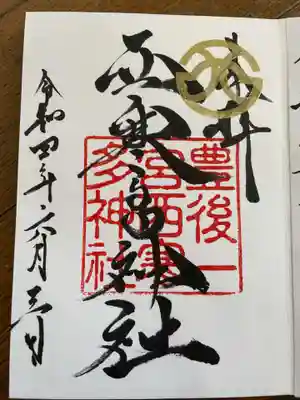 奉拝
西寒多神社
豊後一
宮西寒
多神社
令和四年六月三日